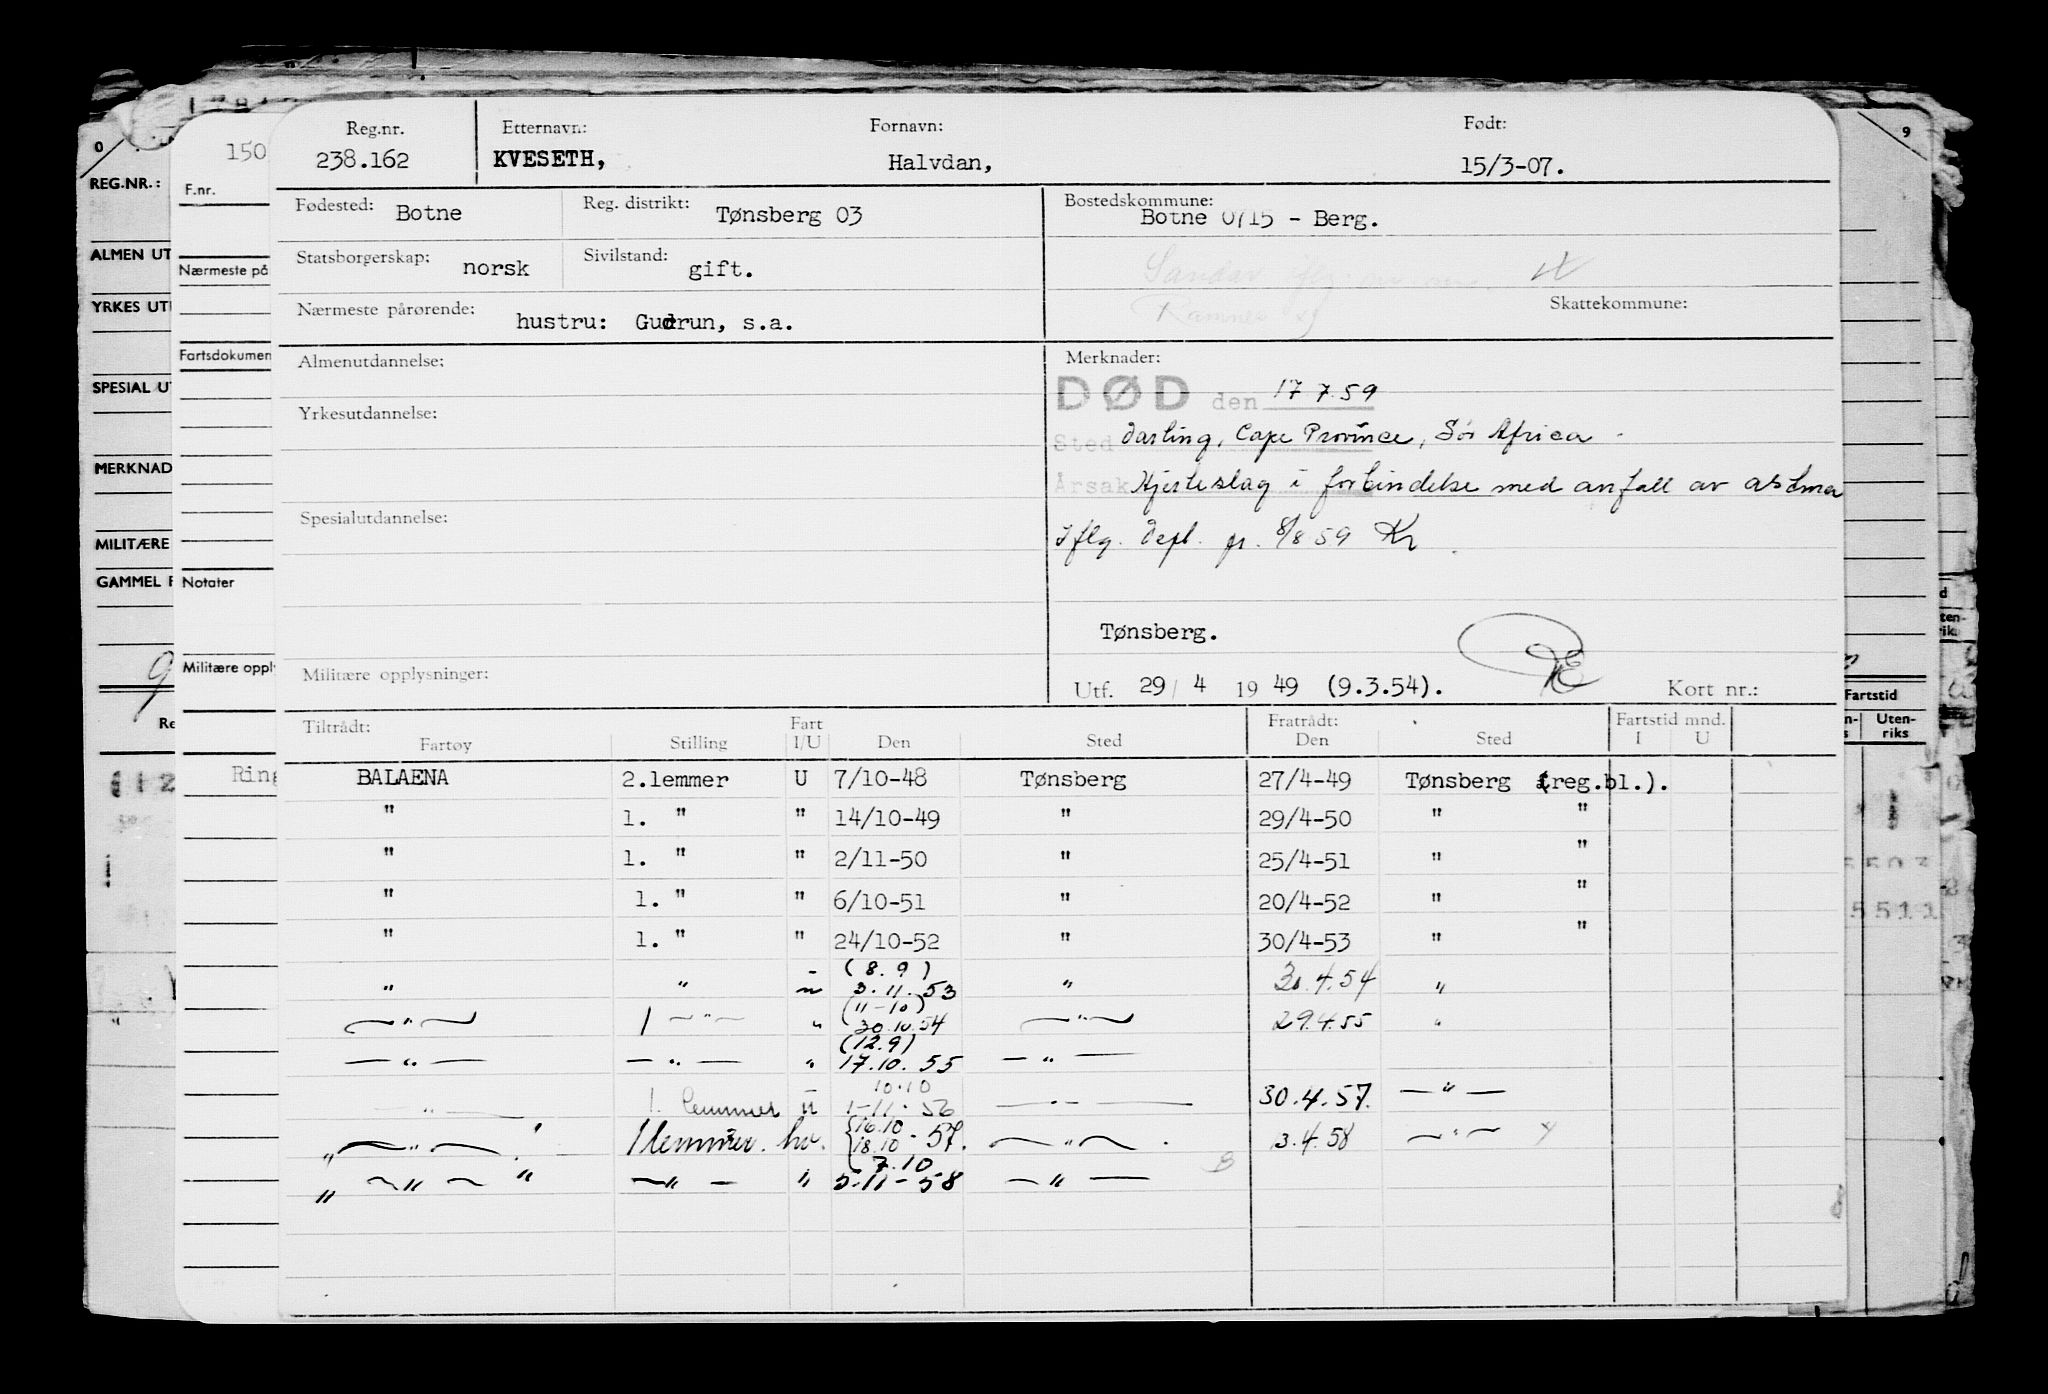 Reg.nr. Etternavn: Fornavn: Født:
238.162 KVESETH, Halvdan, 15/3-07.
Fødested: Botne Reg. distrikt: Tønsberg 03 Bostedskommune:
Botne 0715 - Berg.
Statsborgerskap: norsk Sivilstand: gift.
Sandar
Ramnes
Nærmeste pårørende: hustru: Gudrun, s.a. Skattekommune:
Almenutdannelse: Merknader:
DØD den 17.7.59
Yrkesutdannelse:
Sted Darling, Cape Province, Sør Africa.
Årsak Hjerteslag i forbindelse med anfall av astma
Spesialutdannelse:
Iflg. Depl. pr. 8/8 59 Kr
Tønsberg.
Militære opplysninger:
Utf. 29/4 1949 (9.3.54). Kort nr.:
Tiltrådt: Fart Fratrådt: Fartstid mnd.
Fartøy Stilling I/U Den Sted Den Sted I U
BALAENA 2.lemmer U 7/10-48 Tønsberg 27/4-49 Tønsberg (reg.bl.).
" 1. " " 14/10-49 " 29/4-50 " "
" 1. " " 2/11-50 " 25/4-51 " "
" 1. " " 6/10-51 " 20/4-52 " "
" 1. " " 24/10-52 " 30/4-53 " "
(8.9)
" " 3.11.53 " 30.4.54 "
(11-10)
—"— 1 —"— " 30.10.54 —"— 29.4.55 "
(12.9)
—"— —"— " 17.10.55 —"—
10.10
—"— 1. lemmer u 1-11-56 —"— 30.4.57. —"—
16.10
"—"— 1 lemmer. hv. 18.10-57. —"— 3.4.58 —"—
7.10
" —"— " —"— " 5.11-58 —"—
0
REG.NR.:
ALMEN UT
YRKES UT
SPESIAL UT
MERKNAD
MILITÆRE
GAMMEL F
150
F.nr.
Nærmeste på
Fartsdokumen
Notater
Militære opply
Ring
9
Fartstid
Uten-
riks
5511